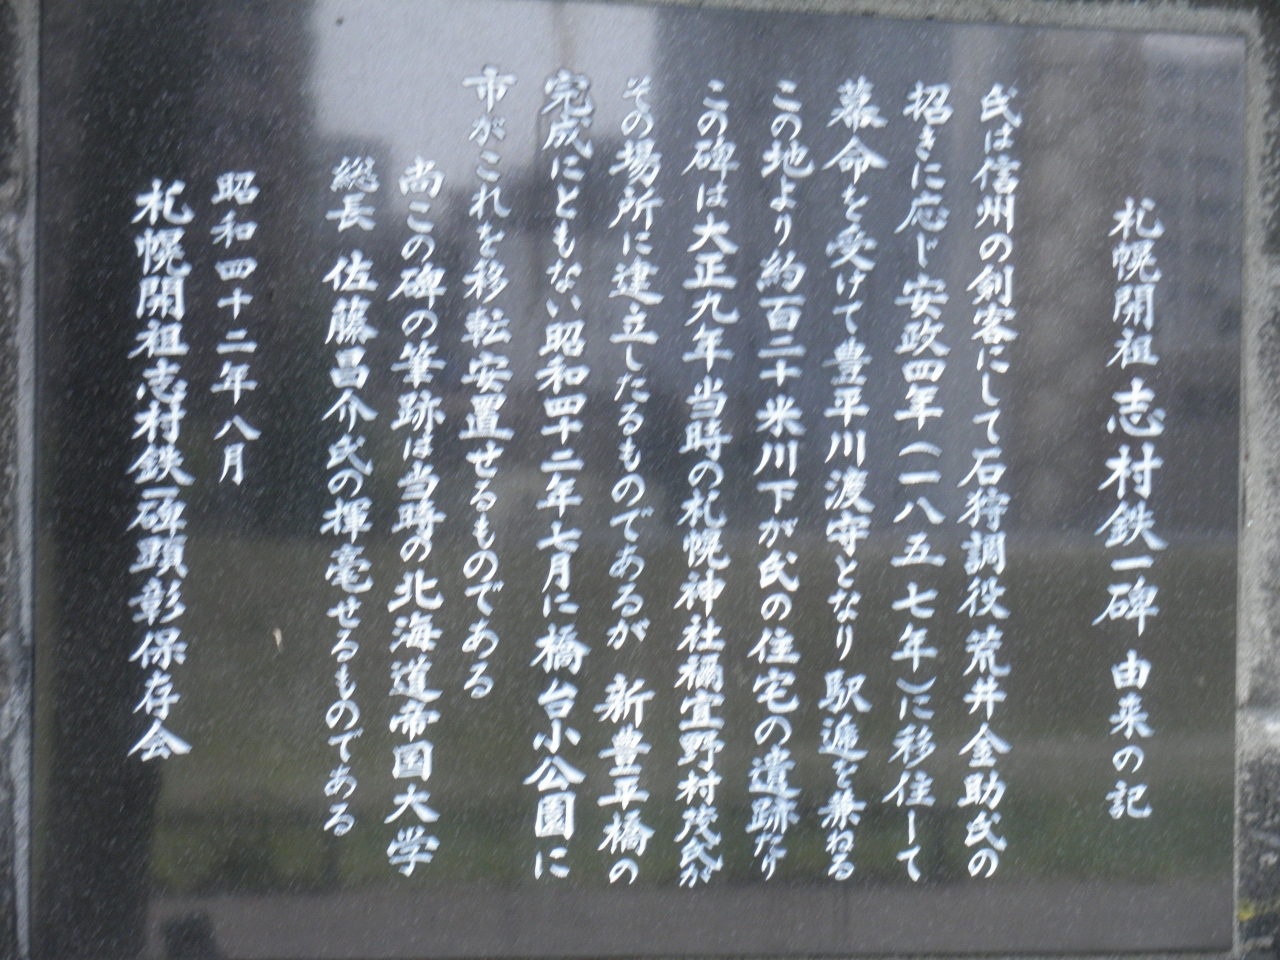 札幌開祖 志村鉄一碑 由来の記
氏は信州の剣客にして石狩調役荒井金助氏の
招きに応じ安政四年(一八五七年)に移住して
幕命を受けて豊平川渡守となり 駅逓を兼ねる
この地より約百二十米川下が氏の住宅の遺跡なり
この碑は大正九年当時の札幌神社禰宜野村茂氏が
その場所に建立したるものであるが 新豊平橋の
完成にともない昭和四十二年七月に橋台小公園に
市がこれを移転安置せるものである
尚この碑の筆跡は当時の北海道帝国大学
総長 佐藤昌介氏の揮毫せるものである
昭和四十二年八月
札幌開祖志村鉄一碑顕彰保存会